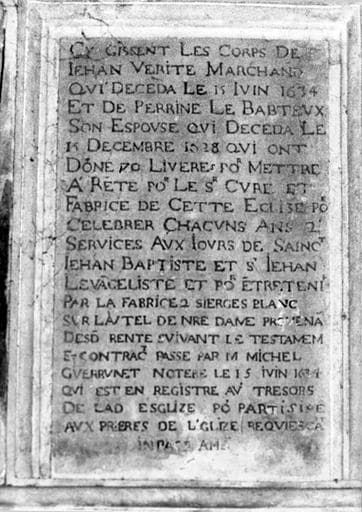 CY GISSENT LES CORPS DE
IEHAN VERITE MARCHAND
QVI DECEDA LE 15 IVIN 1634
ET DE PERRINE LE BABTEVX
SON ESPOVSE QVI DECEDA LE
15 DECEMBRE 1628 QVI ONT
DÕNE 70 LIVERES POR METTRE
A RETE POR LE SR CVRE ET
FABRICE DE CETTE EGLISE PO
CELEBRER CHACVNS ANS 2
SERVICES AVX IOVRS DE SAINCT
IEHAN BAPTISTE ET ST IEHAN
LEVAGELISTE ET POR ETRETENI
PAR LA FABRICE 2 SIERGES BLANC
SVR LAVTEL DE NRE DAME
RENTE SVIVANT LE TESTAMEM
CONTRACT PASSE PAR M MICHEL
NOTERE LE 15 IVIN 1634
QVI EST EN REGISTRE AV TRESORS
DE LAD ESGLIZE PO
AVX PRIERES DE L'GLIZE REQVIESCA
IN PACE AME